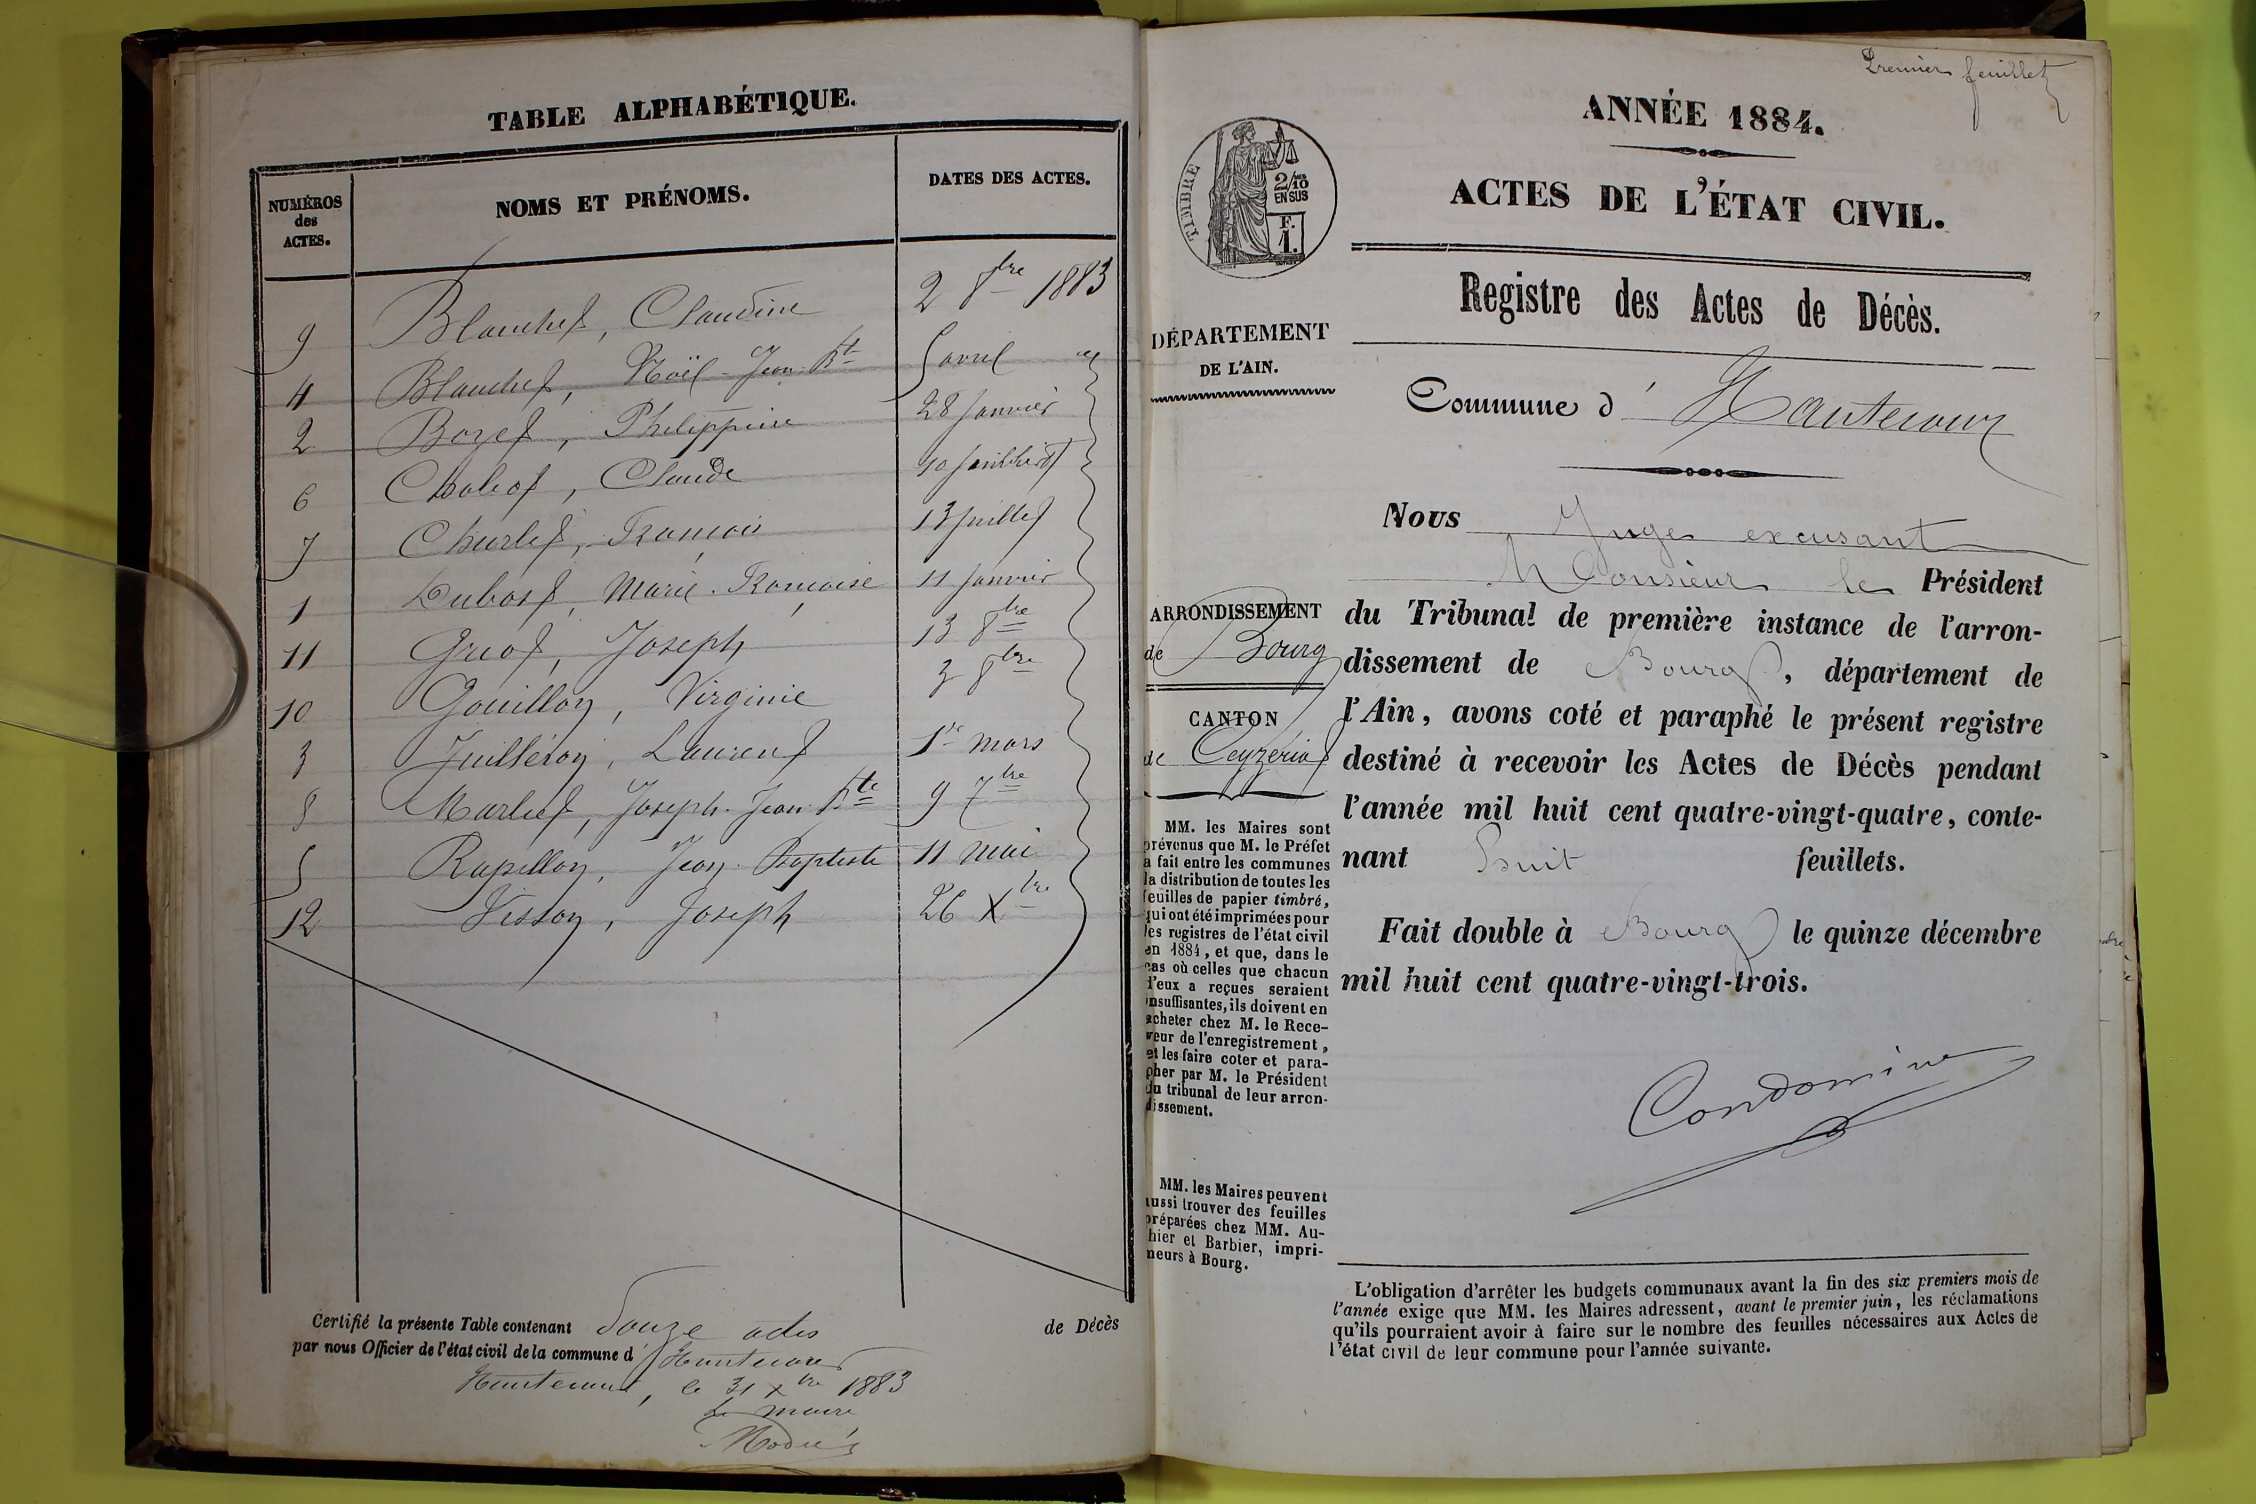 TABLE ALPHABÉTIQUE.
NUMÉROS
des
ACTES.
NOMS ET PRÉNOMS.
DATES DES ACTES.
9 Blanchet, Claudine 2 8bre 1883
4 Blanchet, Noël-Jean-Bte 5 avril
2 Bozet, Philippine 28 Janvier
6 Chabot, Claude 10 Juillet
7 Churlet, François 13 Juillet
1 Dubost, Marie-Françoise 11 Janvier
11 Griot, Joseph 13 8bre
10 Gouillon, Virginie 3 8bre
3 Juilléron, Laurent 1er mars
8 Marlet, Joseph-Jean-Bte 9 7bre
5 Rapillon, Jean-Baptiste 11 mai
12 Visson, Joseph 26 Xbre
Certifié la présente Table contenant Douze actes de Décès
par nous Officier de l'état civil de la commune d'Hautecour
Hautecour, le 31 Xbre 1883
Le maire
Premier feuillet
ANNÉE 1884.
TIMBRE
2/10
EN SUS
F.
1.
ACTES DE L'ÉTAT CIVIL.
Registre des Actes de Décès.
DÉPARTEMENT
DE L'AIN.
Commune d'Hautecour
Nous Juge excusant
Monsieur le Président
du Tribunal de première instance de l'arron-
dissement de Bourg, département de
l'Ain, avons coté et paraphé le présent registre
destiné à recevoir les Actes de Décès pendant
l'année mil huit cent quatre-vingt-quatre, conte-
nant huit feuillets.
Fait double à Bourg le quinze décembre
mil huit cent quatre-vingt-trois.
Condomine
ARRONDISSEMENT
de Bourg
CANTON
de Ceyzériat
MM. les Maires sont
prévenus que M. le Préfet
a fait entre les communes
la distribution de toutes les
feuilles de papier timbré,
qui ont été imprimées pour
les registres de l'état civil
en 1884, et que, dans le
cas où celles que chacun
d'eux a reçues seraient
insuffisantes, ils doivent en
acheter chez M. le Rece-
veur de l'enregistrement,
et les faire coter et para-
pher par M. le Président
du tribunal de leur arron-
dissement.
MM. les Maires peuvent
aussi trouver des feuilles
préparées chez MM. Au-
thier et Barbier, impri-
meurs à Bourg.
L'obligation d'arrêter les budgets communaux avant la fin des six premiers mois de
l'année exige que MM. les Maires adressent, avant le premier juin, les réclamations
qu'ils pourraient avoir à faire sur le nombre des feuilles nécessaires aux Actes de
l'état civil de leur commune pour l'année suivante.